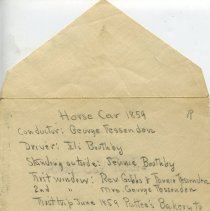 Horse Car 1859
Conductor: George Fessenden
Driver: Eli Boothby
Standing outside: Jennie Boothby
First window: Rev Gibbs & Fannie Fessenden
2nd " Mrs. George Fessenden
First trip June 1859. Potter's Bakery to